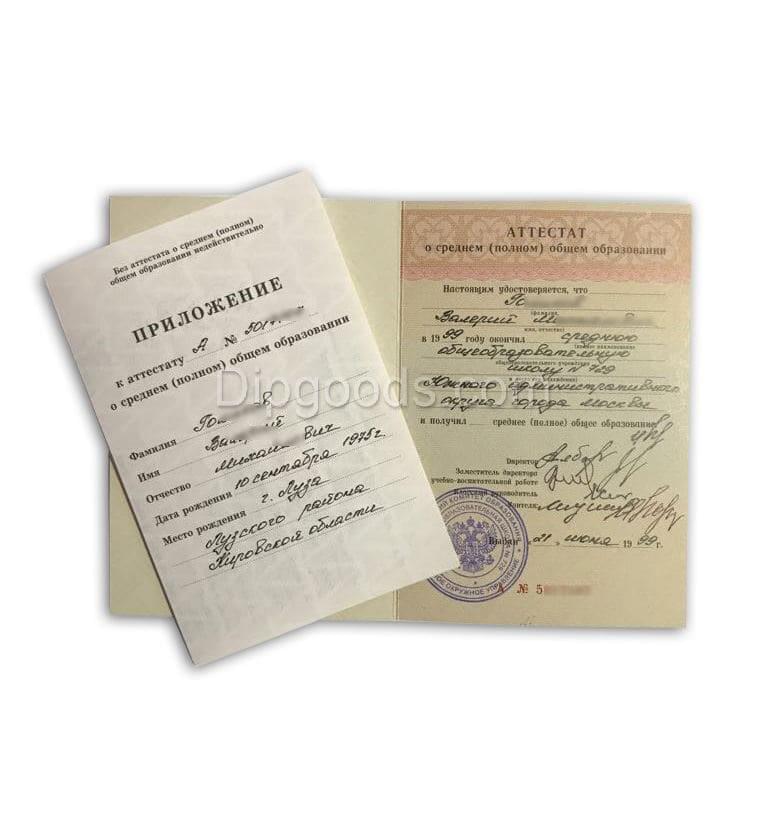 Без аттестата о среднем (полном)
общем образовании недействительно
ПРИЛОЖЕНИЕ
к аттестату А № 5017
о среднем (полном) общем образовании
Фамилия
Имя Вал
Отчество Михайлович
Дата рождения 10 сентября 1975г.
Место рождения г. Луза
Лузского района
Кировской области
АТТЕСТАТ
о среднем (полном) общем образовании
Настоящим удостоверяется, что
(фамилия)
Валерий Ми
(имя, отчество)
в 1999 году окончил среднюю
(полное наименование
общеобразовательную
общеобразовательного учреждения
школу № 729
и его место нахождения)
Южного административного
округа города Москвы
и получил среднее (полное) общее образование
Директор
Заместитель директора
учебно-воспитательной работе
Классный руководитель
Учителя
Выдан 21 июня 1999 г.
А № 5
ОКРУЖНОЕ УПРАВЛЕНИЕ
Dipgoods